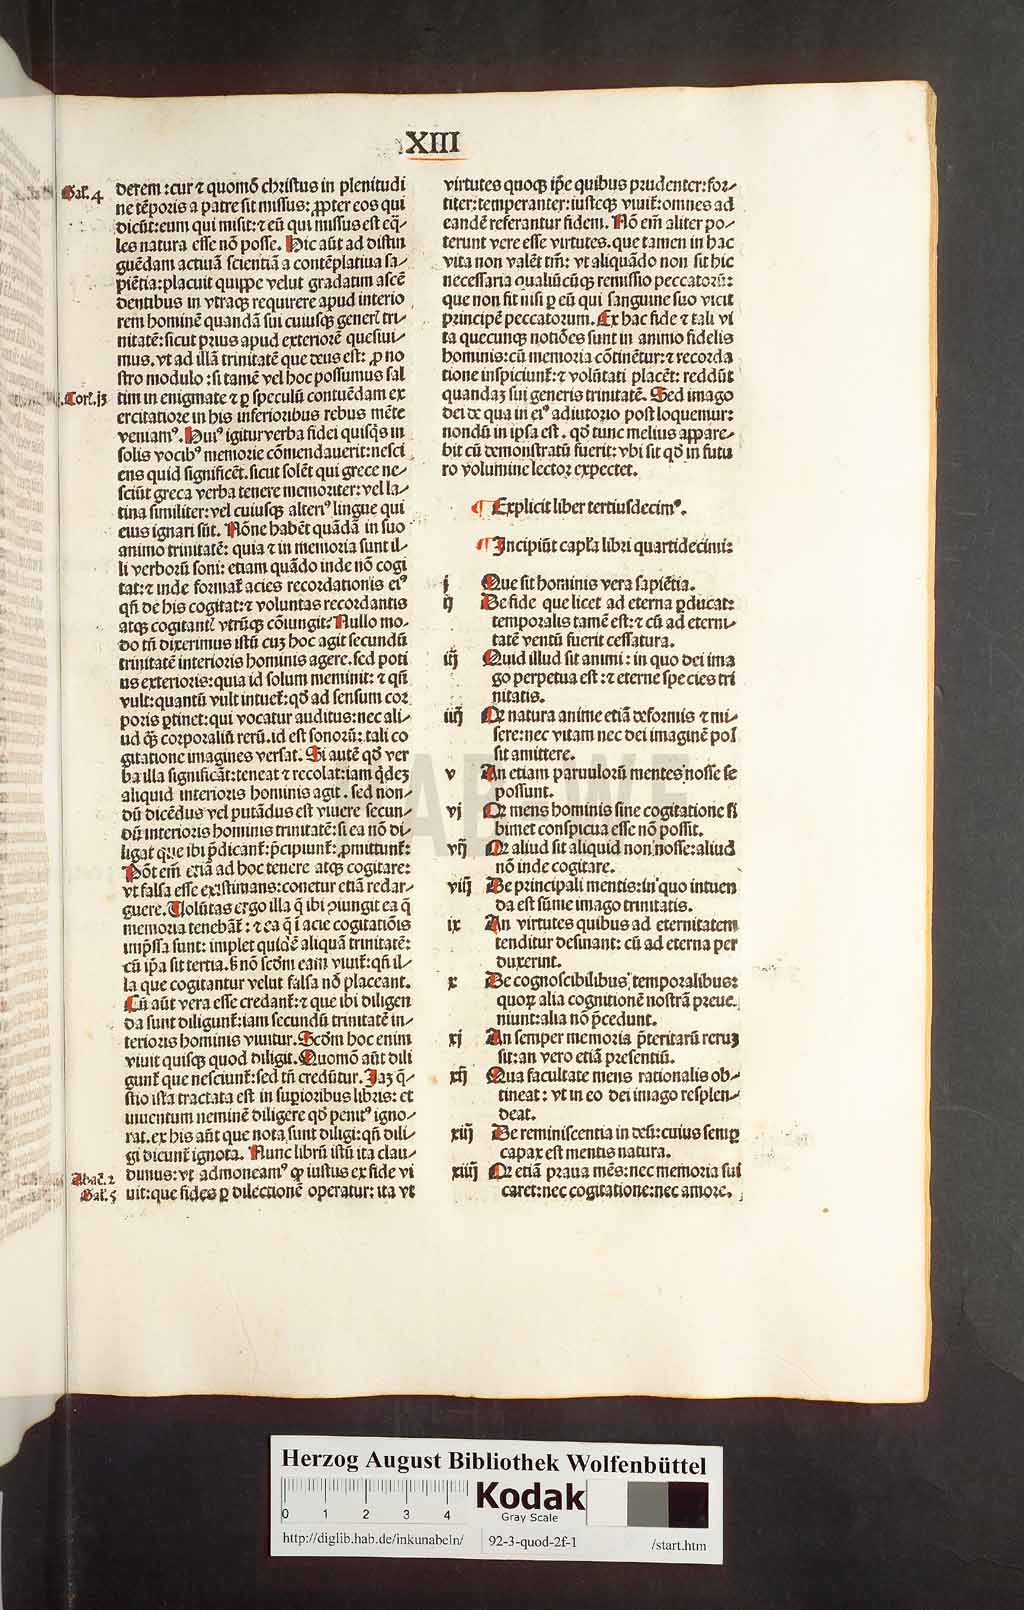 XIII
Gal̃. 4
derem : cur ⁊ quomõ christus in plenitudi
ne tẽporis a patre sit missus: ꝓpter eos qui
dicũt: eum qui misit: ⁊ eũ qui missus est eq̃-
les natura esse nõ posse. Hic aũt ad distin
guẽdam actiuã scientiã a contẽplatiua sa-
piẽtia: placuit quippe velut gradatim ascẽ
dentibus in vtraqꝫ requirere apud interio
rem hominẽ quandã sui cuiusqꝫ gener̃ tri-
nitatẽ: sicut prius apud exteriorẽ quesiui-
mus. vt ad illã trinitatẽ que deus est: ꝓ no
stro modulo : si tamẽ vel hoc possumus sal
j. Corĩ. jꝫ
tim in enigmate ⁊ ꝑ speculũ contuẽdam ex
ercitatiore in his inferioribus rebus mẽte
veniamꝰ. Huiꝰ igitur verba fidei quisq̃s in
solis vocibꝰ memorie cõmendauerit: nesci
ens quid significẽt. sicut solẽt qui grece ne-
sciũt greca verba tenere memoriter: vel la-
tina similiter: vel cuiusqꝫ alteriꝰ lingue qui
eius ignari sũt. Nõne habẽt quãdã in suo
animo trinitatẽ: quia ⁊ in memoria sunt il-
li verborũ soni: etiam quãdo inde nõ cogi
tat: ⁊ inde format̃ acies recordationis eiꝰ
qñ de his cogitat: ⁊ voluntas recordantis
atqꝫ cogitant̃ vtrũqꝫ cõiungit? Nullo mo-
do tñ dixerimus istũ cuꝫ hoc agit secundũ
trinitatẽ interioris hominis agere. sed poti
us exterioris: quia id solum meminit: ⁊ qñ
vult: quantũ vult intuet̃: qð ad sensum cor
poris ꝑtinet: qui vocatur auditus: nec ali-
ud q̃ꝫ corporaliũ rerũ. id est sonorũ: tali co
gitatione imagines versat. Si autẽ qð ver
ba illa significãt: teneat ⁊ recolat: iam q̇deꝫ
aliquid interioris hominis agit. sed non-
dũ dicẽdus vel putãdus est viuere secun-
dũ interioris hominis trinitatẽ: si ea nõ di-
ligat que ibi p̃dicant̃: p̃cipiunt̃: ꝓmittunt̃:
Põt em̃ etiã ad hoc tenere atqꝫ cogitare:
vt falsa esse existimans: conetur etiã redar-
guere. Volũtas ergo illa q̃ ibi ꝯiungit ea q̃
memoria tenebãt̃: ⁊ ea q̃ ĩ acie cogitatiõis
imp̃ssa sunt: implet quidẽ aliquã trinitatẽ:
cũ ip̃a sit tertia. s̃ nõ scďm eam viuit̃: qñ il-
la que cogitantur velut falsa nõ placeant.
Cũ aũt vera esse credant̃: ⁊ que ibi diligen
da sunt diligunt̃: iam secundũ trinitatẽ in-
terioris hominis viuitur. Scďm hoc enim
viuit quisqꝫ quod diligit. Quomõ aũt dili
gunt̃ que nesciunt̃: sed tñ credũtur. Iaꝫ q̃-
stio ista tractata est in superioribus libris: et
inuentum neminẽ diligere qð penitꝰ igno-
rat. ex his aũt que nota sunt diligi: qñ dili-
gi dicunt̃ ignota. Nunc librũ istũ ita clau-
Abac̃. 2
dimus: vt admoneamꝰ ꝙ iustus ex fide vi
Gal̃. 5
uit: que fides ꝑ dilectionẽ operatur: ita vt
virtutes quoqꝫ ip̃e quibus prudenter: for-
titer: temperanter: iusteqꝫ viuit̃: omnes ad
eandẽ referantur fidem. Nõ em̃ aliter po-
terunt vere esse virtutes. que tamen in hac
vita non valẽt tm̃: vt aliquãdo non sit hic
necessaria qualiũcũqꝫ remissio peccatorũ:
que non fit nisi ꝑ eũ qui sanguine suo vicit
principẽ peccatorum. Ex hac fide ⁊ tali vi
ta quecunqꝫ notiões sunt in animo fidelis
hominis: cũ memoria cõtinẽtur: ⁊ recorda
tione inspiciunt̃: ⁊ volũtati placẽt: reddũt
quandaꝫ sui generis trinitatẽ. Sed imago
dei de qua in eiꝰ adiutorio post loquemur:
nondũ in ipsa est. qð tunc melius appare-
bit cũ demonstratũ fuerit: vbi sit qð in futu
ro volumine lector expectet.
¶ Explicit liber tertiusdecimꝰ.
¶ Incipiũt capĩa libri quartidecimi:
j Que sit hominis vera sapiẽtia.
ij De fide que licet ad eterna ꝑducat:
temporalis tamẽ est: ⁊ cũ ad eterni-
tatẽ ventũ fuerit cessatura.
iij Quid illud sit animi: in quo dei ima
go perpetua est: ⁊ eterne species tri
nitatis.
iiij Ꝙ natura anime etiã deformis ⁊ mi-
sere: nec vitam nec dei imaginẽ pos̃
sit amittere.
v An etiam paruulorũ mentes nosse se
possunt.
vj Ꝙ mens hominis sine cogitatione si
bimet conspicua esse nõ possit.
vij Ꝙ aliud sit aliquid non nosse: aliud
nõ inde cogitare.
viij De principali mentis: in quo intuen
da est sũme imago trinitatis.
ix An virtutes quibus ad eternitatem
tenditur desinant: cũ ad eterna per
duxerint.
x De cognoscibilibus temporalibus:
quoꝝ alia cognitionẽ nostrã preue-
niunt: alia nõ p̃cedunt.
xj An semper memoria p̃teritarũ reruꝫ
sit: an vero etiã presentiũ.
xij Qua facultate mens rationalis ob-
tineat: vt in eo dei imago resplen-
deat.
xiij De reminiscentia in desi: cuius semꝑ
capax est mentis natura.
xiiij Ꝙ etiã praua mẽs: nec memoria sui
caret: nec cogitatione: nec amore.
HAB-WF
Herzog August Bibliothek Wolfenbüttel
0 1 2 3 4
Kodak
Gray Scale
http://diglib.hab.de/inkunabeln/ 92-3-quod-2f-1 /start.htm